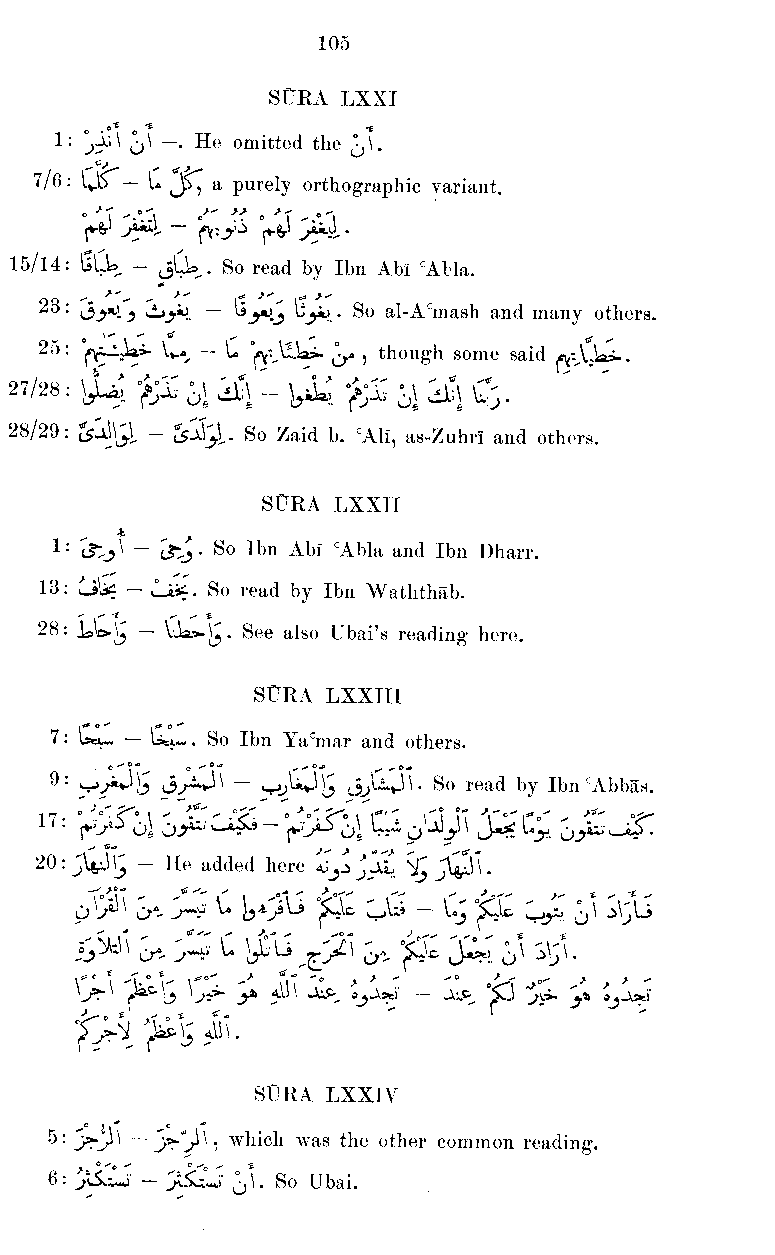 105
SŪRA LXXI
1: أَنْ أَنْذِرْ —. He omitted the أَنْ.
7/6: كُلَّمَا — كُلَّ مَا, a purely orthographic variant.
لِتَغْفِرَ لَهُمْ — لِيَغْفِرَ لَهُمْ ذُنُوبَهُمْ.
15/14: طِبَاقًا — طِبَاقٍ. So read by Ibn Abī ʿAbla.
23: يَغُوثَ وَيَعُوقَ — يَغُوثًا وَيَعُوقًا. So al-Aʿmash and many others.
25: مِمَّا خَطِيـٰٔتِهِمْ — مِنْ خَطِئَاتِهِمْ مَا, though some said خَطِيَّاتِهِمْ.
27/28: إِنَّكَ إِنْ تَذَرْهُمْ يُضِلُّوا — رَبَّنَا إِنَّكَ إِنْ تَذَرْهُمْ يُطْغُوا.
28/29: لِوَالِدَىَّ — لِوَلَدَىَّ. So Zaid b. ʿAlī, as-Zuhrī and others.
SŪRA LXXII
1: أُوحِىَ — وُحِىَ. So Ibn Abī ʿAbla and Ibn Dharr.
13: يَخَافُ — يَخَفْ. So read by Ibn Waththāb.
28: وَأَحَاطَ — وَأَحَطْنَا. See also Ubai's reading here.
SŪRA LXXIII
7: سَبْحًا — سَبْخًا. So Ibn Yaʿmar and others.
9: ٱلْمَشْرِقِ وَٱلْمَغْرِبِ — ٱلْمَشَارِقِ وَٱلْمَغَارِبِ. So read by Ibn ʿAbbās.
17: فَكَيْفَ تَتَّقُونَ إِنْ كَفَرْتُمْ — كَيْفَ تَتَّقُونَ يَوْمًا يَجْعَلُ ٱلْوِلْدَانَ شِيبًا إِنْ كَفَرْتُمْ.
20: وَٱلنَّهَارَ — He added here ٱلنَّهَارَ وَلَا يُقَدِّرُ دُونَهُ.
فَتَابَ عَلَيْكُمْ فَٱقْرَءُوا مَا تَيَسَّرَ مِنَ ٱلْقُرْآنِ — فَأَرَادَ أَنْ يَتُوبَ عَلَيْكُمْ وَمَا
أَرَادَ أَنْ يَجْعَلَ عَلَيْكُمْ مِنَ ٱلْحَرَجِ فَٱتْلُوا مَا تَيَسَّرَ مِنَ ٱلتِّلَاوَةِ.
تَجِدُوهُ عِنْدَ ٱللَّهِ هُوَ خَيْرًا وَأَعْظَمَ أَجْرًا — تَجِدُوهُ هُوَ خَيْرٌ لَكُمْ عِنْدَ
ٱللَّهِ وَأَعْظَمُ لِأَجْرِكُمْ.
SŪRA LXXIV
5: ٱلرُّجْزَ — ٱلرِّجْزَ, which was the other common reading.
6: تَسْتَكْثِرُ — أَنْ تَسْتَكْثِرَ. So Ubai.